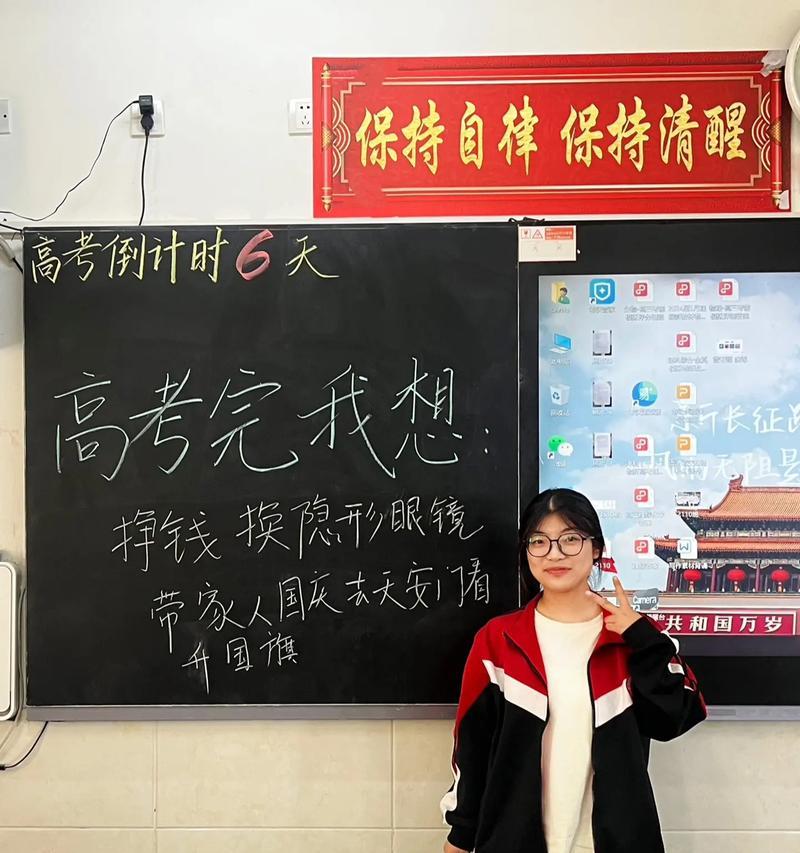 保持自律 保持清醒
高考倒计时6天
高考完我想:
挣钱 换隐形眼镜
带家人国庆去天安门看
升国旗
新长征
风雨无阻
共和国万岁
回收站
Camera
2110